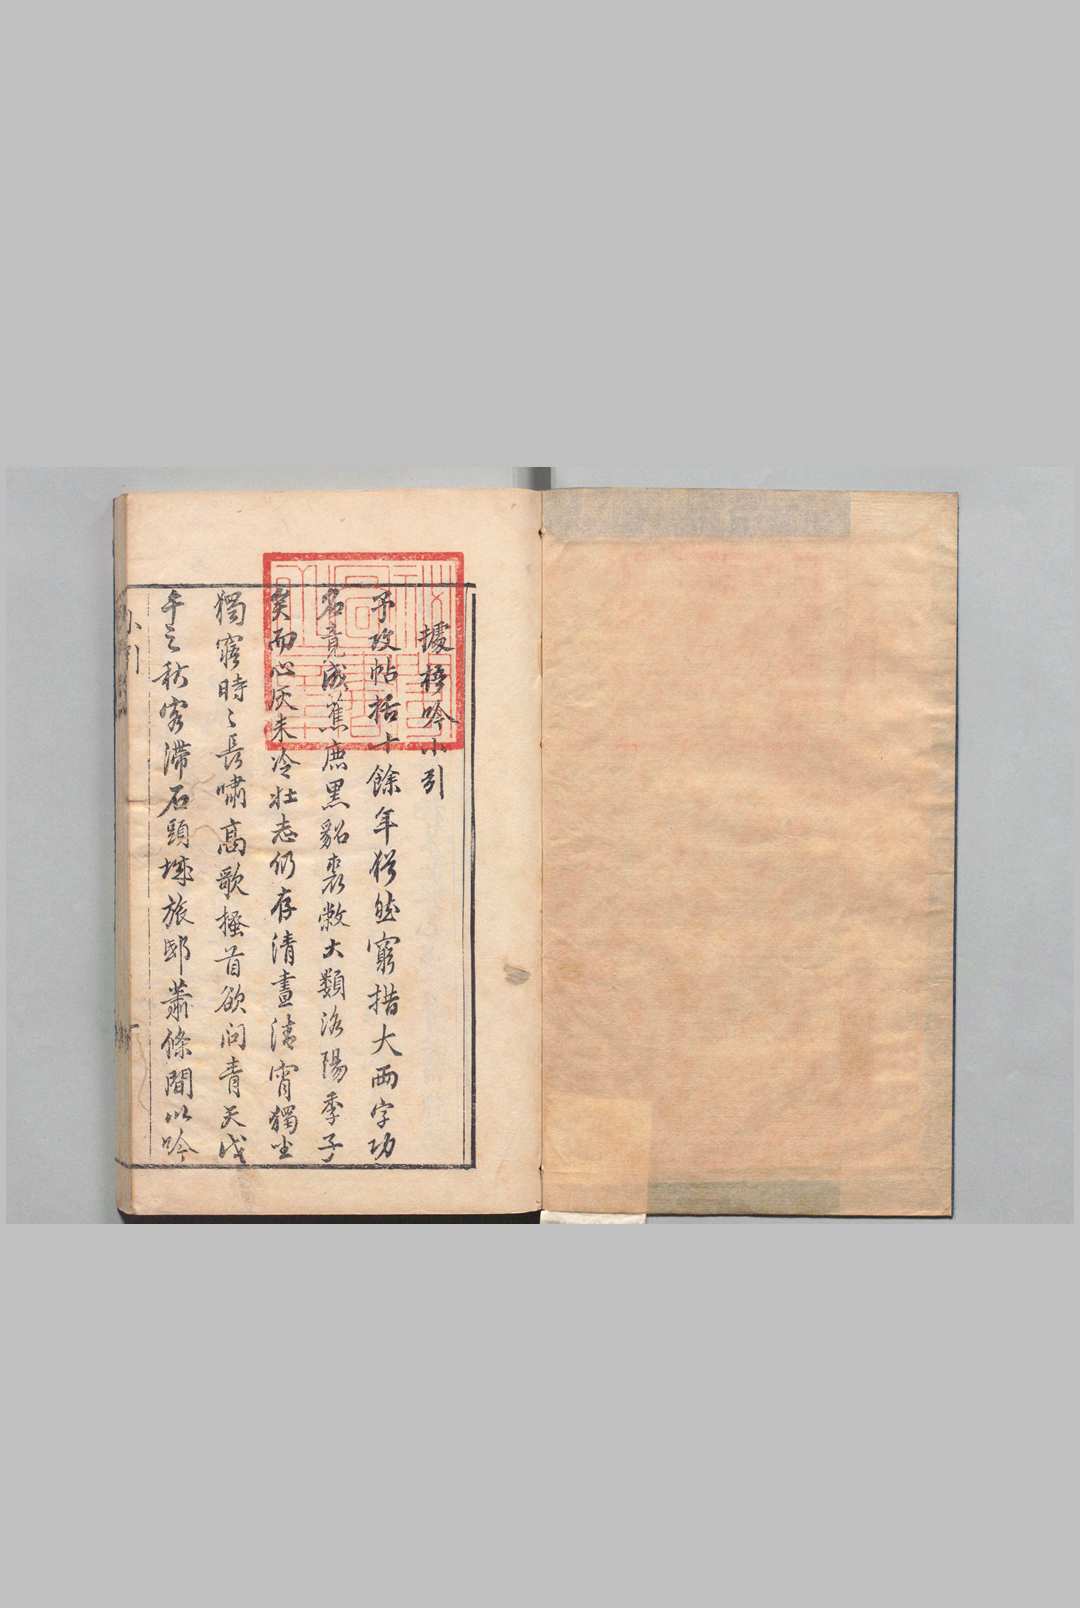 據梧吟小引
予攻帖括十餘年猶然窮措大兩字功
名竟成蕉鹿黑貂裘敝大類洛陽季子
矣而心灰未冷壯志仍存清晝清宵獨坐
獨寤時〻長嘯高歌搔首欲问青天戊
午之秋客滯石頭城旅邸蕭條間以吟
小引